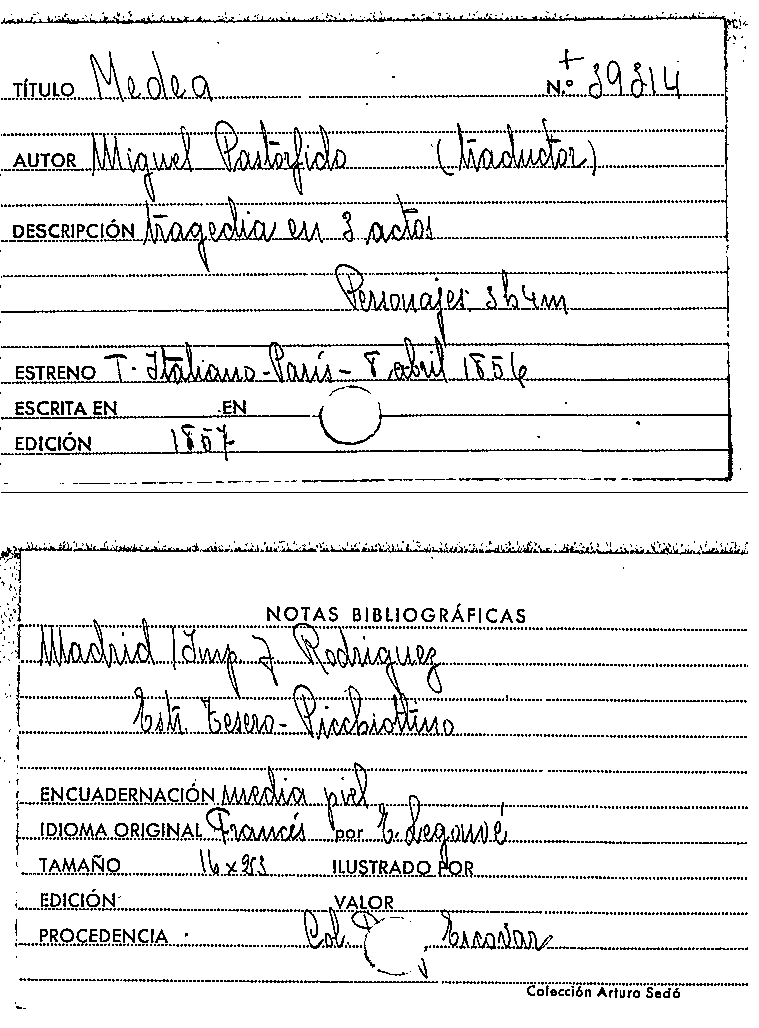 TÍTULO Medea N.º + 39314
AUTOR Miguel Pastorfido (traductor)
DESCRIPCIÓN tragedia en 3 actos
Personajes 3h4m
ESTRENO T. Italiano - París - 8 abril 1856
ESCRITA EN EN
EDICIÓN 1857
NOTAS BIBLIOGRÁFICAS
Madrid / Imp J Rodriguez
Estr. - Picchiottino
ENCUADERNACIÓN media piel
IDIOMA ORIGINAL Francés por E. Legouvé
TAMAÑO ILUSTRADO POR
EDICIÓN VALOR
PROCEDENCIA Col. Escovar
Colección Arturo Sedó